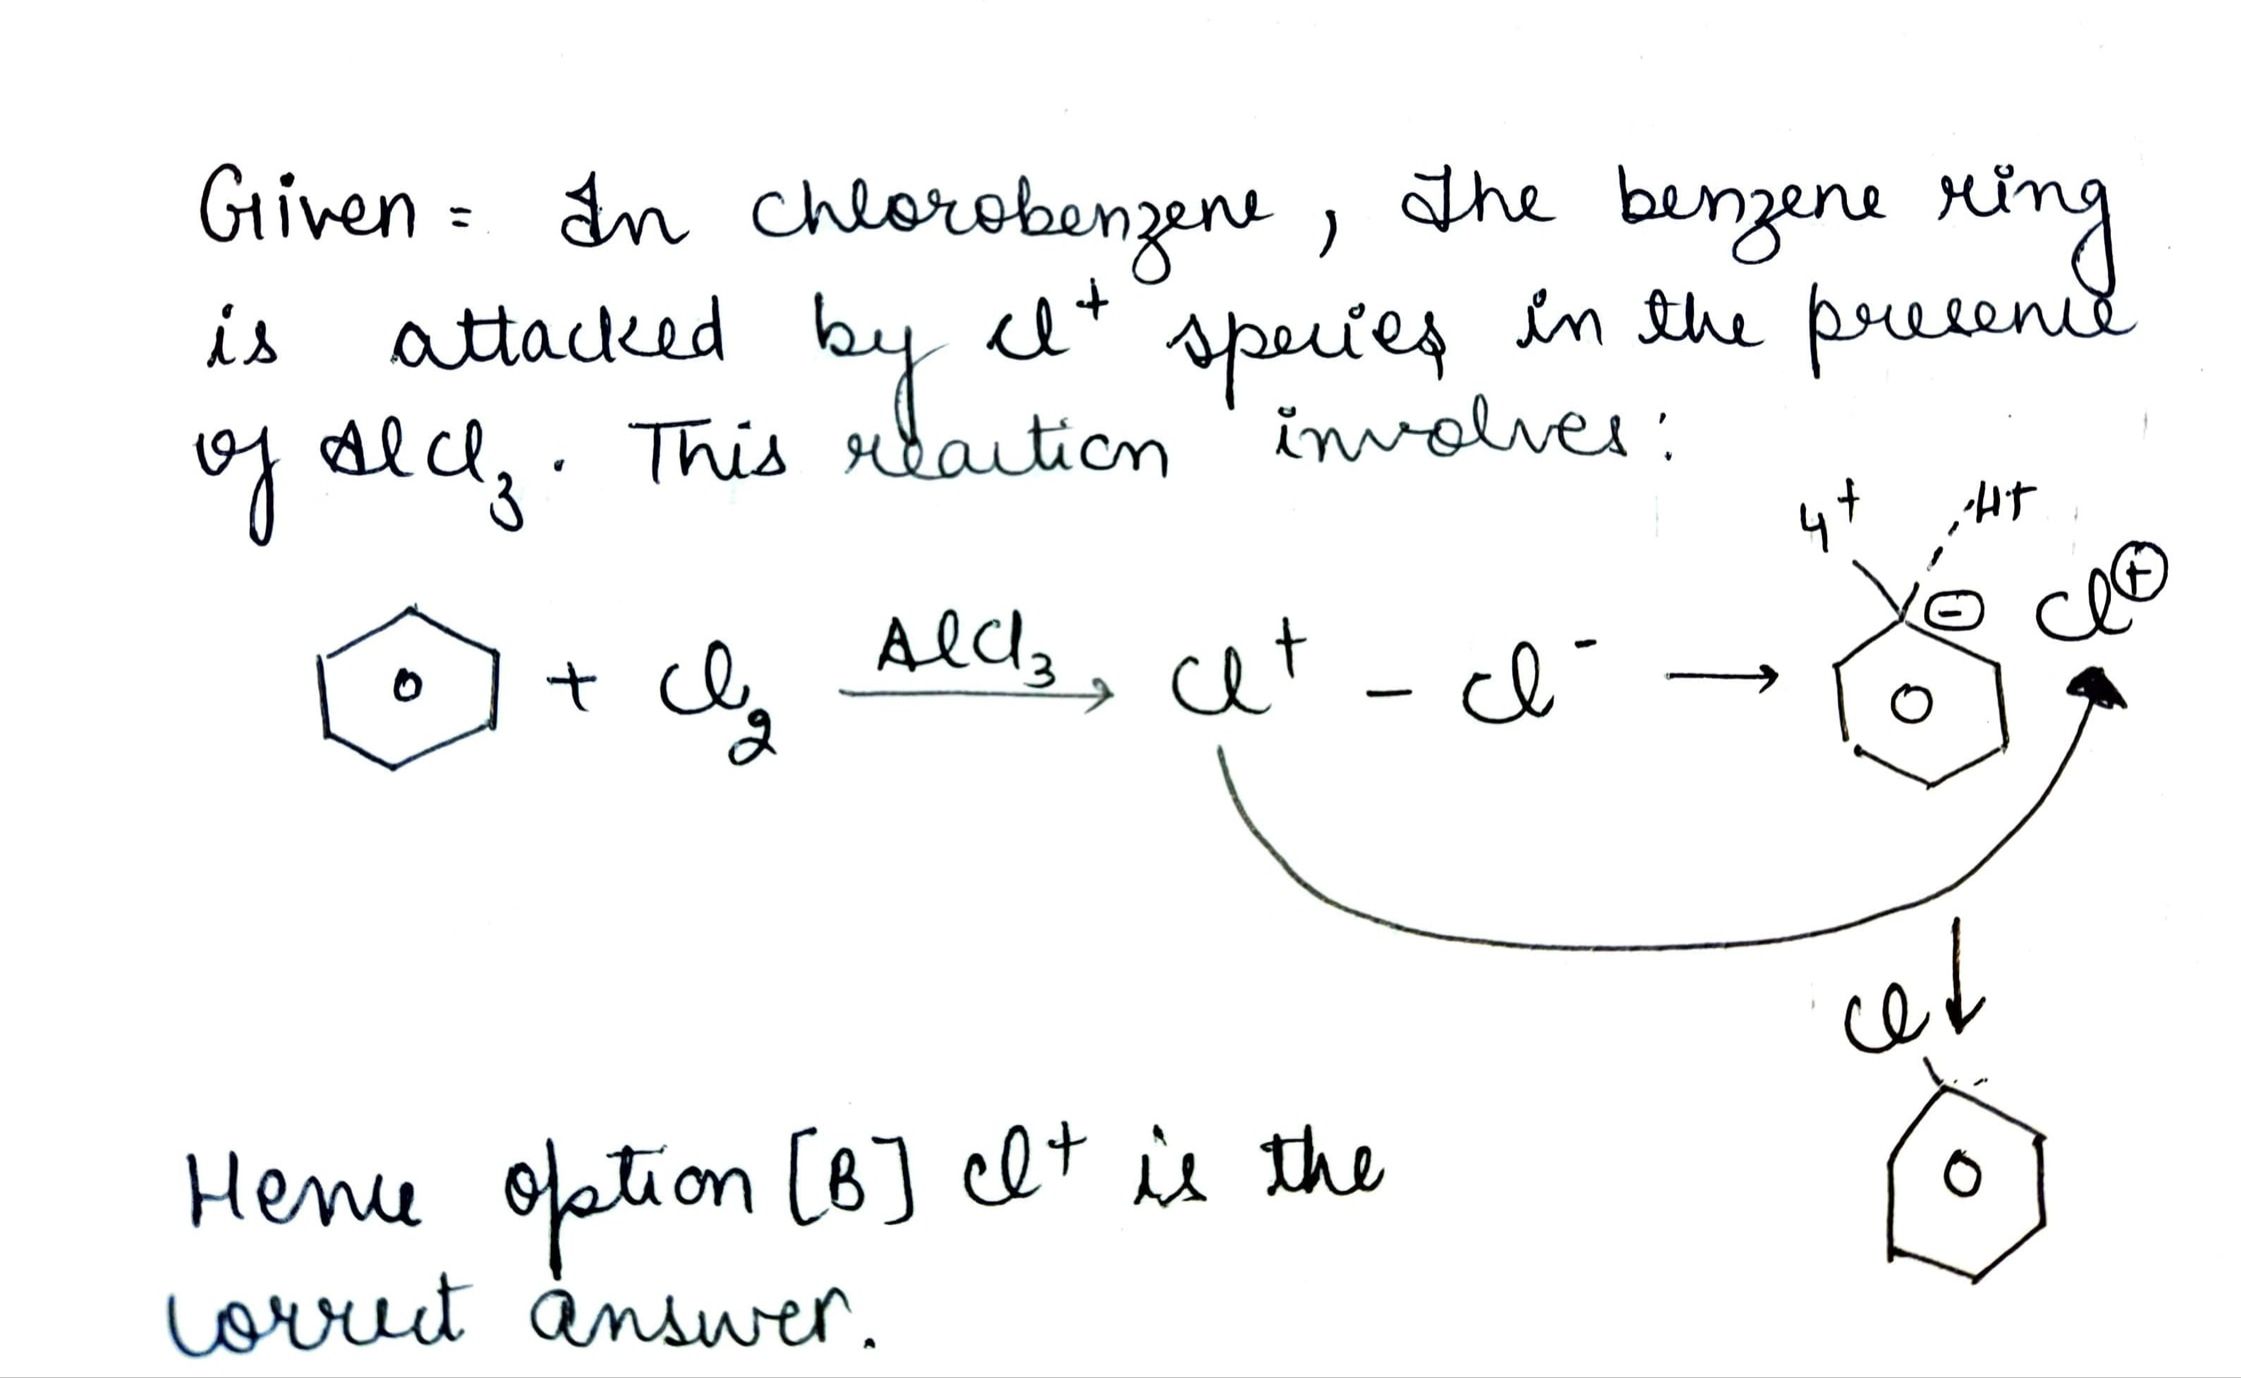 Given = In chlorobenzene, The benzene ring
is attacked by Cl+ species in the presence
of AlCl3. This reaction involves:
4+ H+
Cl⊕
⊖
AlCl3
+ Cl2 → Cl+ - Cl- →
Cl
Hence option [B] Cl+ is the
correct answer.